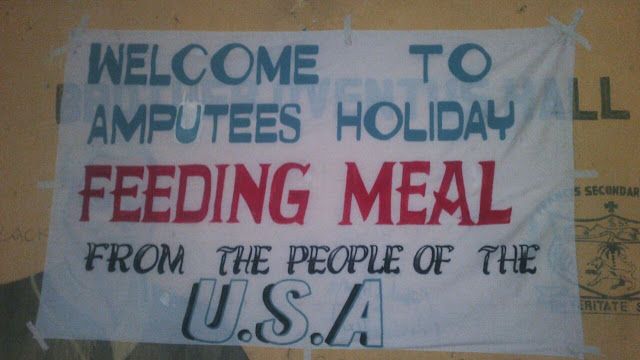 WELCOME TO
AMPUTEES HOLIDAY
FEEDING MEAL
FROM THE PEOPLE OF THE
U.S.A
HALL
SECONDAR